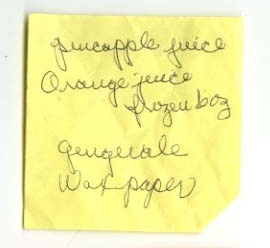 pineapple juice
Orange juice
frozen bag
gingerale
Wax paper